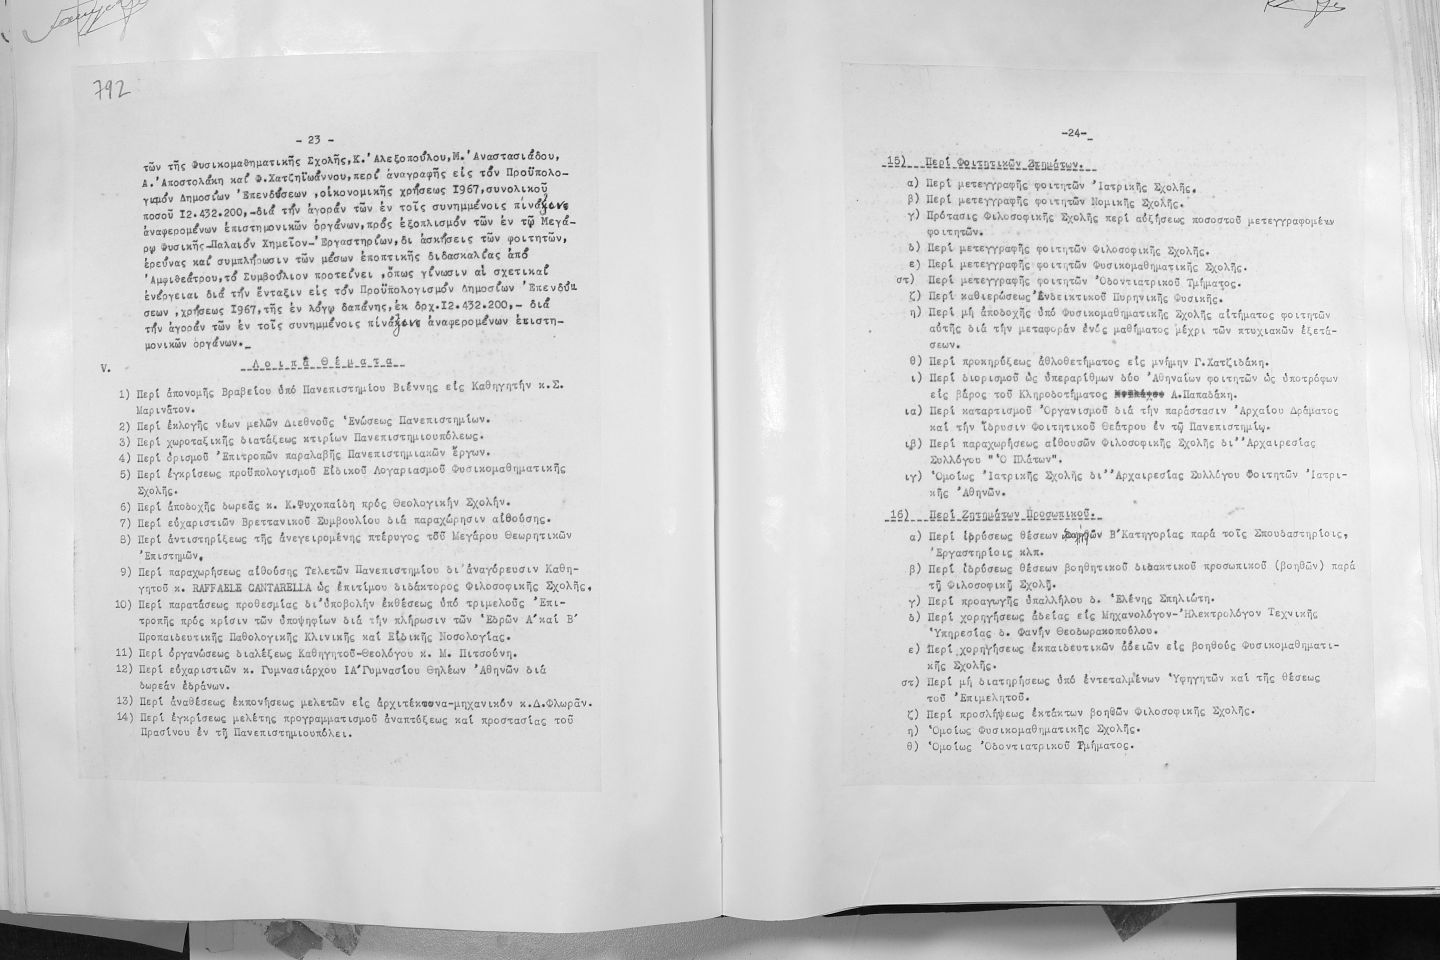 792
- 23 -
τῶν τῆς Φυσικομαθηματικῆς Σχολῆς,Κ.Ἀλεξοπούλου,Μ.Ἀναστασιάδου,
Α.Ἀποστολάκη καί Φ.Χατζηϊωάννου,περί ἀναγραφῆς εἰς τόν Προϋπολο-
γισμόν Δημοσίων Ἐπενδύσεων ,οἰκονομικῆς χρήσεως 1967,συνολικοῦ
ποσοῦ 12.432.200,-διά τήν ἀγοράν τῶν ἐν τοῖς συνημμένοις πίναξιν
ἀναφερομένων ἐπιστημονικῶν ὀργάνων,πρός ἐξοπλισμόν τῶν ἐν τῷ Μεγά-
ρῳ Φυσικῆς-Παλαιόν Χημεῖον-Ἐργαστηρίων,δι ἀσκήσεις τῶν φοιτητῶν,
ἐρεύνας καί συμπλήρωσιν τῶν μέσων ἐποπτικῆς διδασκαλίας ἀπό
Ἀμφιθεάτρου,τό Συμβούλιον προτείνει ,ὅπως γίνωσιν αἱ σχετικαί
ἐνέργειαι διά τήν ἔνταξιν εἰς τόν Προϋπολογισμόν Δημοσίων Ἐπενδύ
σεων ,χρήσεως 1967,τῆς ἐν λόγῳ δαπάνης,ἐκ δρχ.12.432.200,- διά
τήν ἀγοράν τῶν ἐν τοῖς συνημμένοις πίναξιν ἀναφερομένων ἐπιστη-
μονικῶν ὀργάνων.-
V. Λοιπά Θέματα
1) Περί ἀπονομῆς Βραβείου ὑπό Πανεπιστημίου Βιέννης εἰς Καθηγητήν κ.Σ.
Μαρινᾶτον.
2) Περί ἐκλογῆς νέων μελῶν Διεθνοῦς Ἑνώσεως Πανεπιστημίων.
3) Περί χωροταξικῆς διατάξεως κτιρίων Πανεπιστημιουπόλεως.
4) Περί ὁρισμοῦ Ἐπιτροπῶν παραλαβῆς Πανεπιστημιακῶν Ἔργων.
5) Περί ἐγκρίσεως προϋπολογισμοῦ Εἰδικοῦ Λογαριασμοῦ Φυσικομαθηματικῆς
Σχολῆς.
6) Περί ἀποδοχῆς δωρεᾶς κ. Κ.Ψυχοπαίδη πρός Θεολογικήν Σχολήν.
7) Περί εὐχαριστιῶν Βρεττανικοῦ Συμβουλίου διά παραχώρησιν αἰθούσης.
8) Περί ἀντιστηρίξεως τῆς ἀνεγειρομένης πτέρυγος τοῦ Μεγάρου Θεωρητικῶν
Ἐπιστημῶν.
9) Περί παραχωρήσεως αἰθούσης Τελετῶν Πανεπιστημίου δι'ἀναγόρευσιν Καθη-
γητοῦ κ. RAFFAELE CANTARELLA ὡς ἐπιτίμου διδάκτορος Φιλοσοφικῆς Σχολῆς.
10) Περί παρατάσεως προθεσμίας δι'ὑποβολήν ἐκθέσεως ὑπό τριμελοῦς Ἐπι-
τροπῆς πρός κρίσιν τῶν ὑποψηφίων διά τήν πλήρωσιν τῶν Ἑδρῶν Α΄καί Β΄
Προπαιδευτικῆς Παθολογικῆς Κλινικῆς καί Εἰδικῆς Νοσολογίας.
11) Περί ὀργανώσεως διαλέξεως Καθηγητοῦ-Θεολόγου κ. Μ. Πιτσούνη.
12) Περί εὐχαριστιῶν κ. Γυμνασιάρχου ΙΑ΄Γυμνασίου Θηλέων Ἀθηνῶν διά
δωρεάν ἑδράνων.
13) Περί ἀναθέσεως ἐκπονήσεως μελετῶν εἰς ἀρχιτέκτονα-μηχανικόν κ.Δ.Φλωρᾶν.
14) Περί ἐγκρίσεως μελέτης προγραμματισμοῦ ἀναπτύξεως καί προστασίας τοῦ
Πρασίνου ἐν τῇ Πανεπιστημιουπόλει.
-24-
15) Περί Φοιτητικῶν Ζητημάτων.
α) Περί μετεγγραφῆς φοιτητῶν Ἰατρικῆς Σχολῆς.
β) Περί μετεγγραφῆς φοιτητῶν Νομικῆς Σχολῆς.
γ) Πρότασις Φιλοσοφικῆς Σχολῆς περί αὐξήσεως ποσοστοῦ μετεγγραφομένων
φοιτητῶν.
δ) Περί μετεγγραφῆς φοιτητῶν Φιλοσοφικῆς Σχολῆς.
ε) Περί μετεγγραφῆς φοιτητῶν Φυσικομαθηματικῆς Σχολῆς.
στ) Περί μετεγγραφῆς φοιτητῶν Ὀδοντιατρικοῦ Τμήματος.
ζ) Περί καθιερώσεως Ἐνδεικτικοῦ Πυρηνικῆς Φυσικῆς.
η) Περί μή ἀποδοχῆς ὑπό Φυσικομαθηματικῆς Σχολῆς αἰτήματος φοιτητῶν
αὐτῆς διά τήν μεταφοράν ἑνός μαθήματος μέχρι τῶν πτυχιακῶν ἐξετά-
σεων.
θ) Περί προκηρύξεως ἀθλοθετήματος εἰς μνήμην Γ.Χατζιδάκη.
ι) Περί διορισμοῦ ὡς ὑπεραρίθμων δύο Ἀθηναίων φοιτητῶν ὡς ὑποτρόφων
εἰς βάρος τοῦ Κληροδοτήματος Α.Παπαδάκη.
ια) Περί καταρτισμοῦ Ὀργανισμοῦ διά τήν παράστασιν Ἀρχαίου Δράματος
καί τήν ἵδρυσιν Φοιτητικοῦ Θεάτρου ἐν τῷ Πανεπιστημίῳ.
ιβ) Περί παραχωρήσεως αἰθουσῶν Φιλοσοφικῆς Σχολῆς δι'Ἀρχαιρεσίας
Συλλόγου "Ὁ Πλάτων".
ιγ) Ὁμοίως Ἰατρικῆς Σχολῆς δι'Ἀρχαιρεσίας Συλλόγου Φοιτητῶν Ἰατρι-
κῆς Ἀθηνῶν.
16) Περί Ζητημάτων Προσωπικοῦ.
α) Περί ἱδρύσεως θέσεων Β΄Κατηγορίας παρά τοῖς Σπουδαστηρίοις,
Ἐργαστηρίοις κλπ.
β) Περί ἱδρύσεως θέσεων βοηθητικοῦ διδακτικοῦ προσωπικοῦ (βοηθῶν) παρά
τῇ Φιλοσοφικῇ Σχολῇ.
γ) Περί προαγωγῆς ὑπαλλήλου δ. Ἑλένης Σπηλιώτη.
δ) Περί χορηγήσεως ἀδείας εἰς Μηχανολόγον-Ἠλεκτρολόγον Τεχνικῆς
Ὑπηρεσίας δ. Φανήν Θεοδωρακοπούλου.
ε) Περί χορηγήσεως ἐκπαιδευτικῶν ἀδειῶν εἰς βοηθούς Φυσικομαθηματι-
κῆς Σχολῆς.
στ) Περί μή διατηρήσεως ὑπό ἐντεταλμένων Ὑφηγητῶν καί τῆς θέσεως
τοῦ Ἐπιμελητοῦ.
ζ) Περί προσλήψεως ἐκτάκτων βοηθῶν Φιλοσοφικῆς Σχολῆς.
η) Ὁμοίως Φυσικομαθηματικῆς Σχολῆς.
θ) Ὁμοίως Ὀδοντιατρικοῦ Τμήματος.